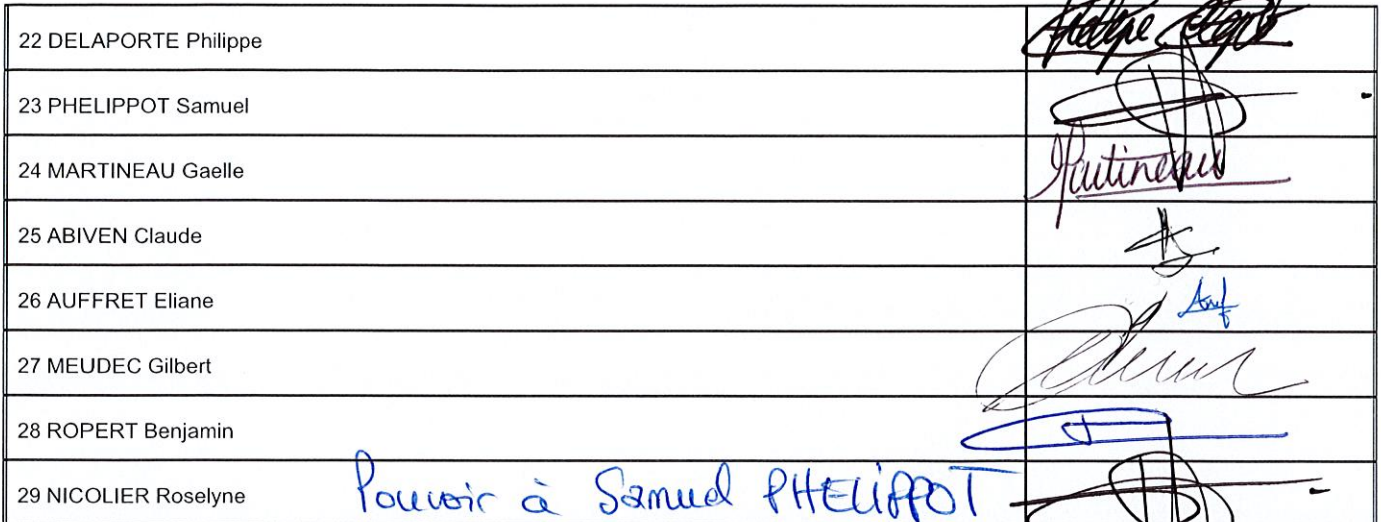 22 DELAPORTE Philippe
23 PHELIPPOT Samuel
24 MARTINEAU Gaelle Martineau
25 ABIVEN Claude
26 AUFFRET Eliane
27 MEUDEC Gilbert
28 ROPERT Benjamin
29 NICOLIER Roselyne Pouvoir à Samuel PHELIPPOT